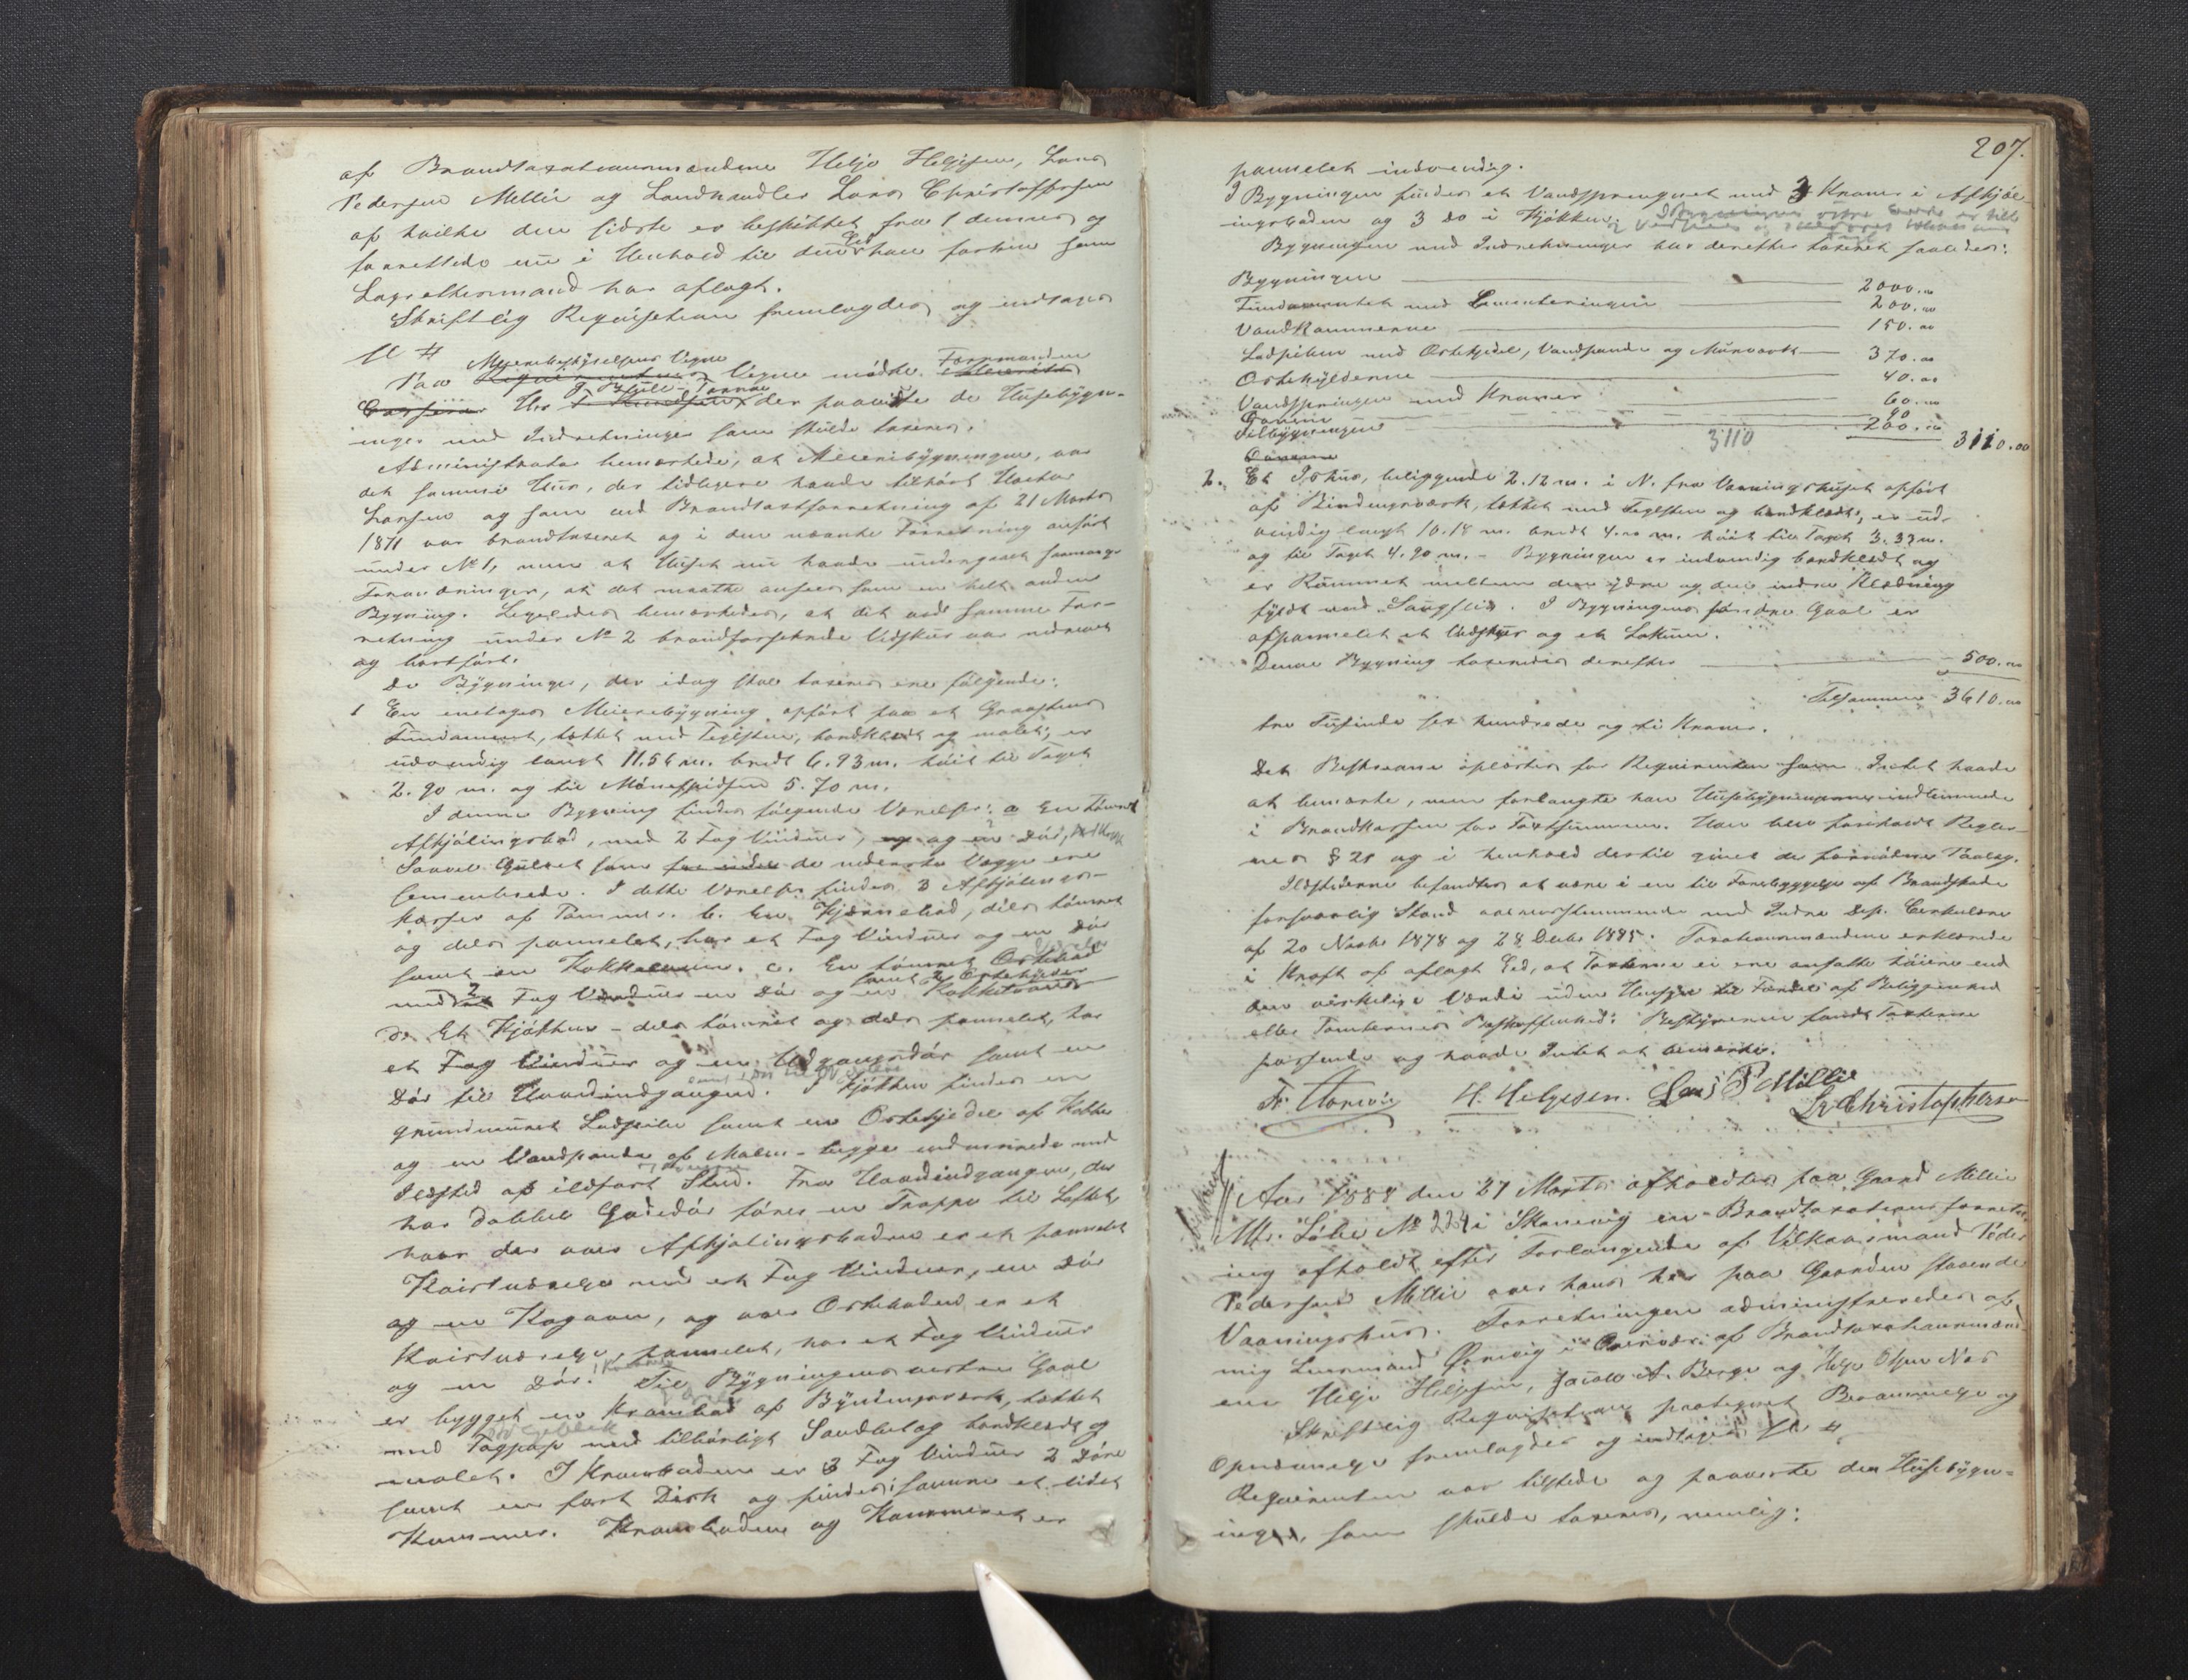 af Brandtaxationsmændene Helje Heljesen, Lars
Pedersen Millie og Landhandler Lars Christoffersen
af hvilke den sidste er beskikket fra 1 dennes og
forrettede nu i Henhold til den Ed han forhen som
Lagrettesmand har aflagt.
Skriftlig Requisition fremlagdes og indtages
Meieribestyrelsens Vegne Formanden
Paa Requirentens Vegne mødte
Hr. der paaviste de Husebygn-
inger med Indretninger som skulde taxeres.
Administrator bemærkede, at Meieribygningen, var
det samme Hus, der tidligere havde tilhørt
Larsen og som ved Brandtaxtforretning af 21 Marts
1871 var brandtaxeret og i den nævnte Forretning anført
under No 1, men at Huset nu havde undergaaet saamange
Forandringer, at det maatte ansees som en helt anden
Bygning. Ligeledes bemærkedes, at det ved samme For-
retning under No 2 brandforsikrede Vedskur var nedrevet
og bortført.
De Bygninger, der idag skal taxeres ere følgende:
1 En enetages Meieribygning opført paa et Graastens
Fundament, tækket med Teglsten, bordklædt og malet; er
udvendig langt 11.54 m. bredt 6.93 m. høit til Taget
2.90 m. og til Mønespidsen 5.70 m.
I denne Bygning findes følgende Værelser: a En tømret
Afkjølingsbod, med 2 Fag Vinduer, og en Dør,
Saavel Gulvet som de nederste Vægge ere
cementerede. I dette Værelse findes 3 Afkjølings-
kasser af Tømmer. b. En Kjærnebod, dels tømret
og dels pannelet, har et Fag Vinduer og en Dør
samt en Kokkelovn. c. En tømret Ostebod
samt 2 Ostehylder
med 2 Fag Vinduer en Dør og en Kakkelovn
d. Et Kjøkken - dels tømret og dels pannelet, har
et Fag Vinduer og en Udgangsdør samt en
Dør til Hovedindgangen. I Kjøkken findes en
grundmuret Ladpibe samt en Ostekjedel af Kobber
og en Vandpande af Malm - begge indmurede med
Ildsted af ildfast Sten. Fra Hovedindgangen, der
har dobbel Gadedør fører en Trappe til Loftet,
hvor der over Afkjølingsboden er et pannelet
Kvistværelse med et Fag Vinduer, en Dør
og en Kogovn, og over Osteboden er et
Kvistværelse, pannelet, har et Fag Vinduer
og en Dør. Til Bygningens vestre Gavl
er bygget en Krambod af Bindingsværk, tækket
med Tagpap med tilbørligt Sandbelag bordklædt og
malet. I Kramboden er 3 Fag Vinduer 2 Døre
samt en fast Disk og findes i samme et lidet
Kammer. Kramboden og Kammeret er
207.
pannelet indvendig.
I Bygningen findes et Vandspringvæt med 3 Kraner i Afkjøl-
ingsboden og 3 do i Kjøkken.
Bygningen med Indretninger blev derefter taxeret saaledes:
Bygningen 2000.00
Fundamentet med Cementeringen 200.00
Vandkummerne 150.00
Ladpiben med Ostekjedel, Vandpande og Murværk 370.00
Ostehylderne 40.00
Vandspringet med Kraner 60.00
Ovnene 90
Tilbygningen 200.00
3110 3110.00
2. Et Ishus, beliggende 2.12 m. i N. fra Vaaningshuset opført
af Bindingsværk, tækket med Teglsten og bordklædt; er ud-
vendig langt 10.18 m. bredt 4.00 m. høit til Taget 3.33 m.
og til Taget 4.90 m. - Bygningen er indvendig bordklædt og
er Rummet mellem den ydre og den indre Klædning
fyldt med Saugflis. I Bygningens søndre Gavl er
afpannelet et Vedskur og et Lokum.
Denne Bygning taxeredes derefter 500.00
Tilsammen 3610.00
tre Tusinde sex hundrede og ti Kroner.
Det Beskrevne oplæstes for Requirenten som Intet havde
at bemærke, men forlangte han Husebygningerne indlemmede
i Brandkassen for Taxtsummen. Han blev foreholdt Regler-
nes § 21 og i henhold dertil givet de fornødne Paalæg.
Ildstederne befandtes at være i en til Forebyggelse af Brandskade
forsvarlig Stand overensstemmende med Indre Dep. Cirkulære
af 20 Novbr 1878 og 28 Decbr 1885. Taxationsmændene erklærede
i Kraft af aflagt Eed, at Taxterne ei ere ansatte høiere end
den virkelige Værdi uden Hensyn til Fordel af Beliggenhed
eller Tomternes Beskaffenhed. Bestyreren fandt Taxterne
passende og havde Intet at bemærke.
H. Helgesen. Lars P Millie
L Christophersen
Aar 1888 den 27 Marts afholdtes paa Gaard Millie
Mtr. Løbe No 224 i Skonevig en Brandtaxationsforretn-
ing afholdt efter Forlangende af Vilkaarsmand Peder
Pedersen Millie over hans her paa Gaarden staaende
Vaaningshus. Forretningen administreredes af
mig Lensmand i Overvær af Brandtaxationsmænd-
ene Helje Heljesen, Jacob A. Berge og Helje Olsen Næs
Skriftlig Requisition protegnet Berammelse og
Opnævnelse fremlagdes og indtages
Requirenten var tilstede og paaviste den Husebygn-
ing, som skulde taxeres, nemlig: